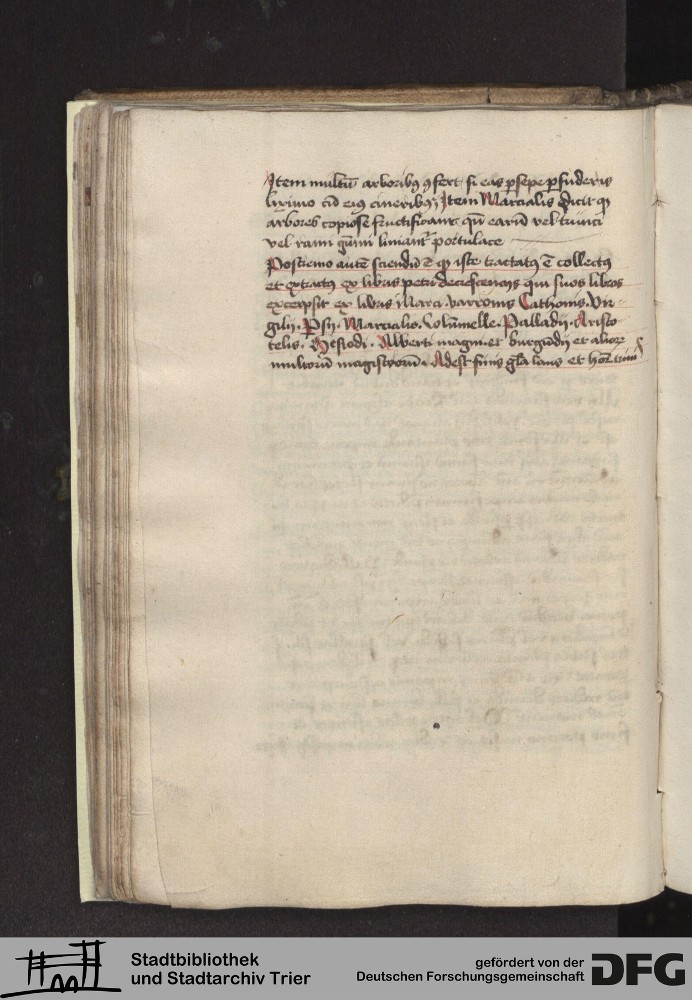 Item multū arboribꝫ ꝯfert si eas ꝑsepe ꝑfuderis
lixiuio cū eiꝰ cineribꝫ Item Marcialis dicit ꝙ
arbores copiose fructificant qn̄ earū vel trunci
vel rami liniant᷑ portulace
Postremo autē sciendū ē ꝙ iste tractatꝰ ē collectꝰ
et extractꝰ ex libris petri de crescencijs qui suos libros
excerpsit ex libris Marci . varronis Cathonis . Vir-
gilij . Marcialis . Columelle . Palladij . Aristo-
telis . Hesiodi . Alberti magni . et burgūdij et alioꝝ
multorū magistrorū . Adest finis gl̄a laus et
Stadtbibliothek
und Stadtarchiv Trier
gefördert von der
Deutschen Forschungsgemeinschaft
DFG